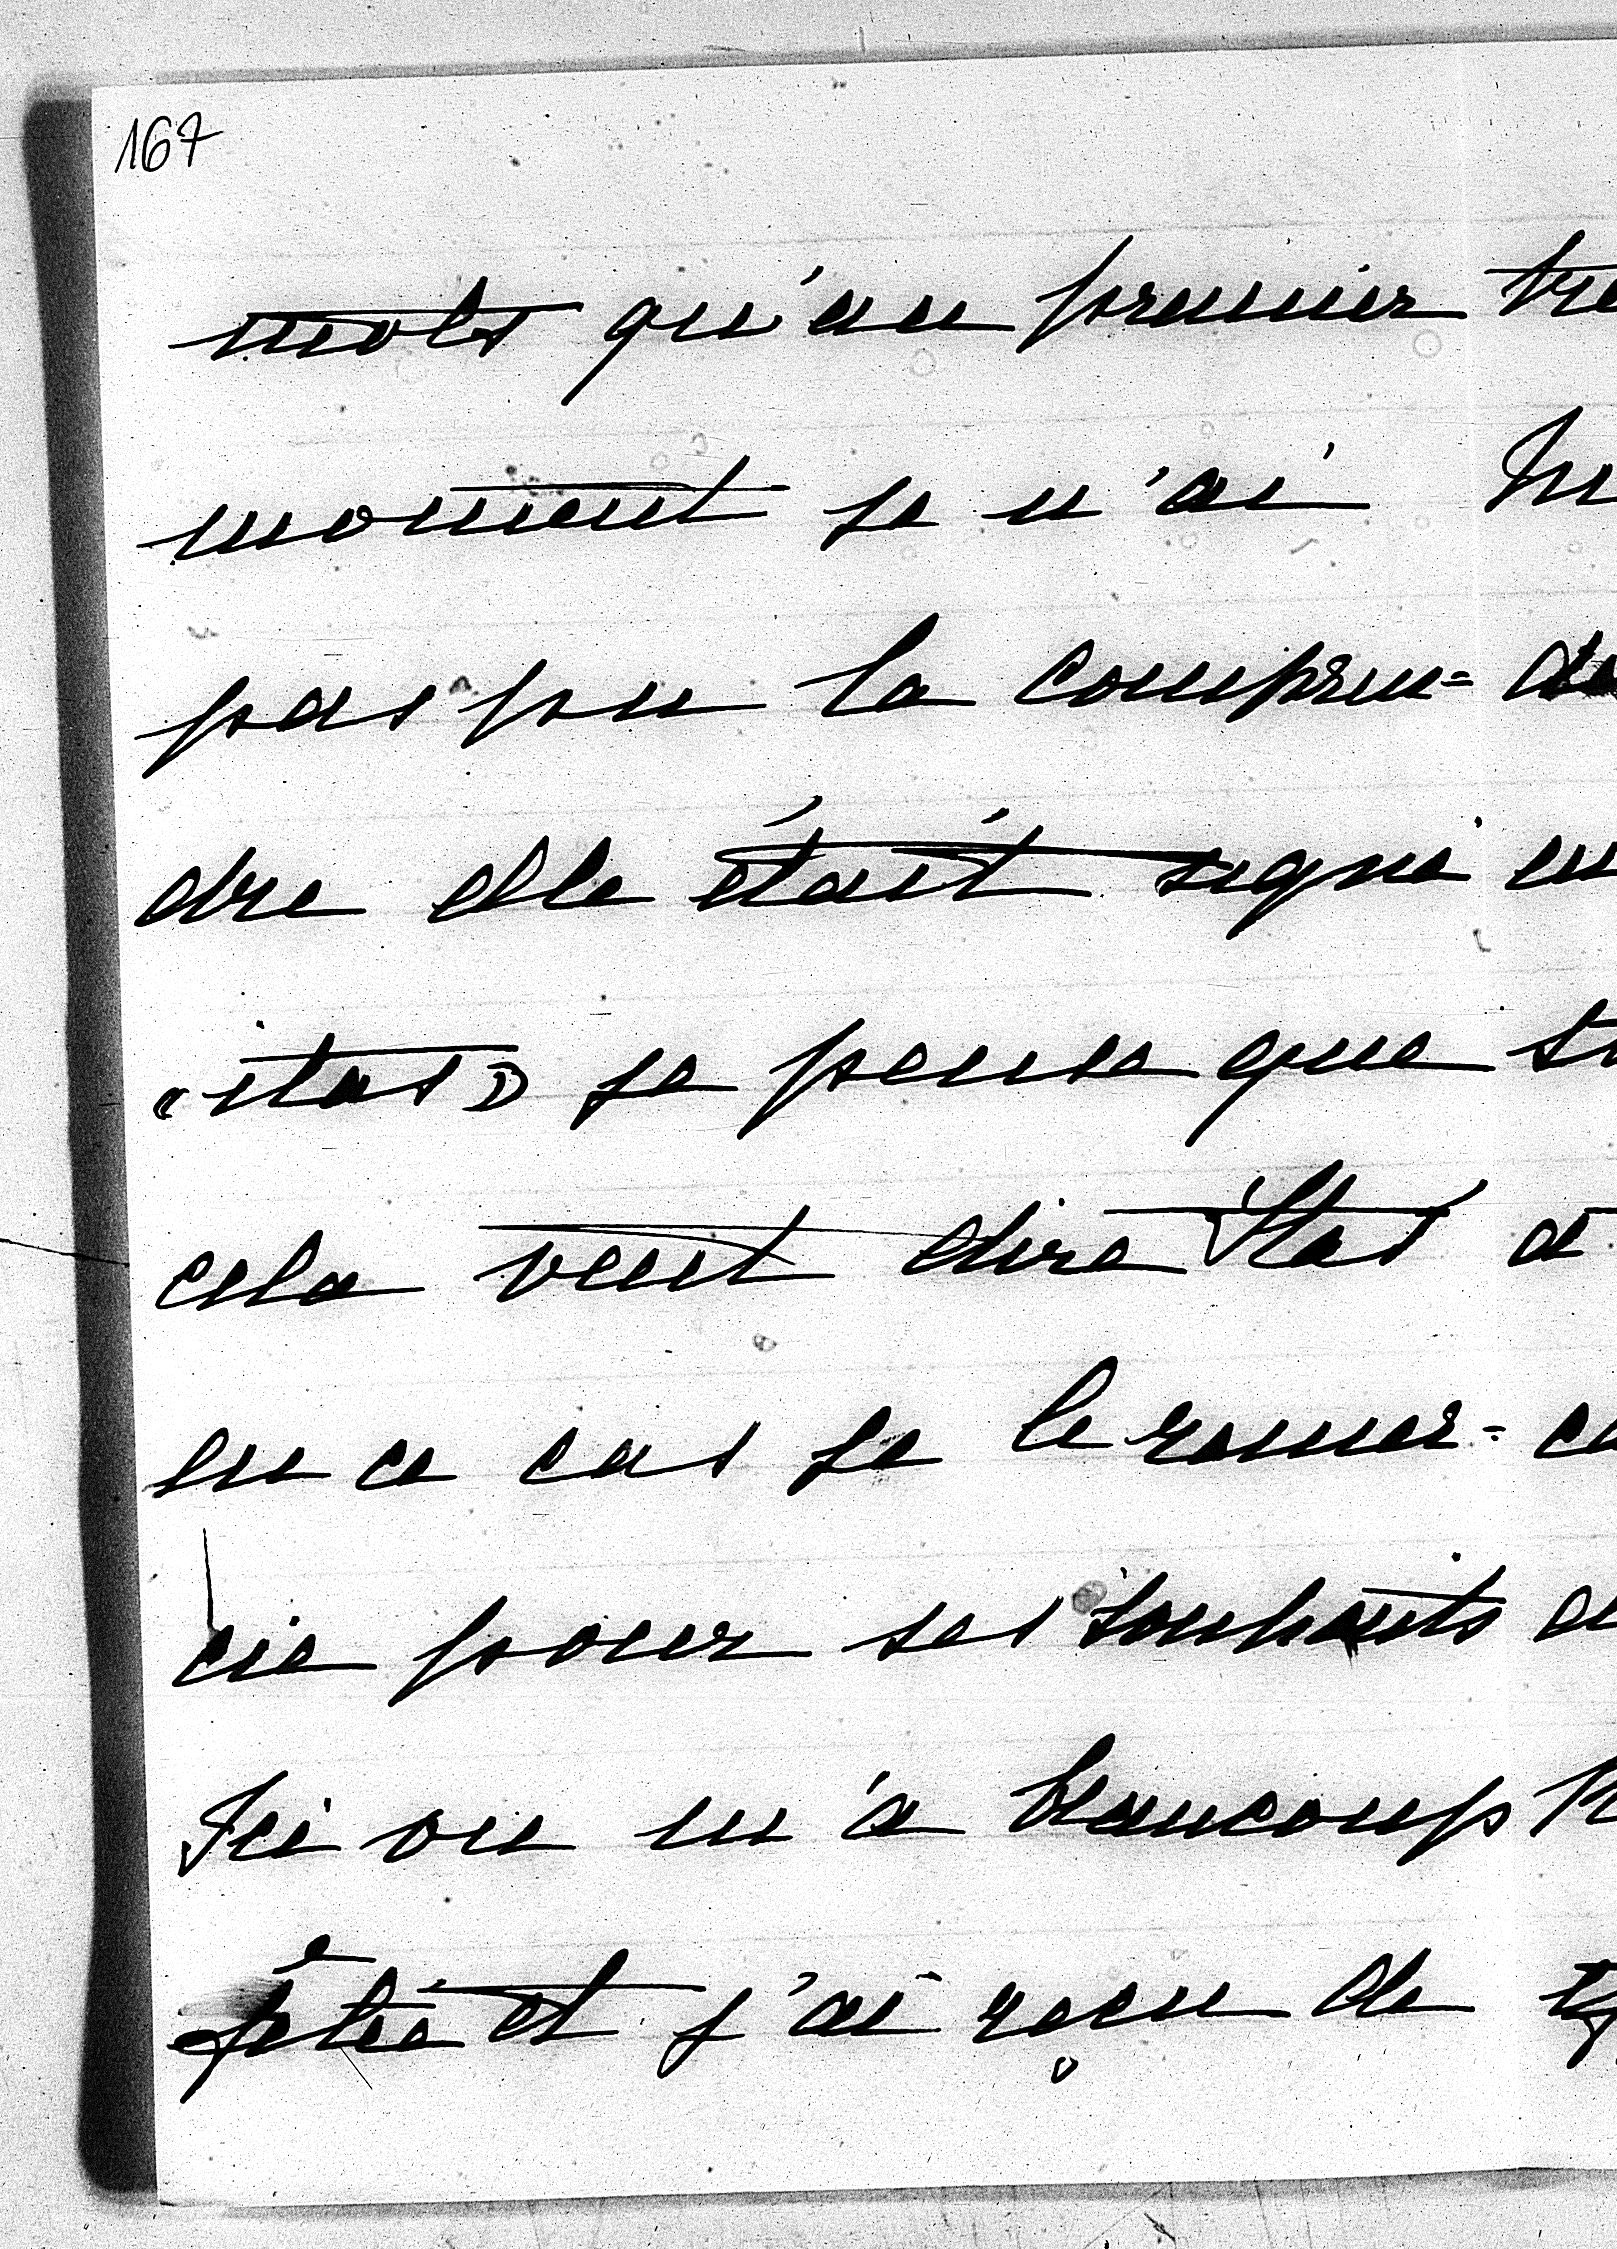 167
mots qu'au premier
moment je n'ai
pas pu la compren=
dre elle était signé en
«itas» je pense que
cela veut dire Stas
en ce cas je le remer=
cie pour ses souhaits
Ici on m'a beaucoup
fêtée et j'ai reçu de